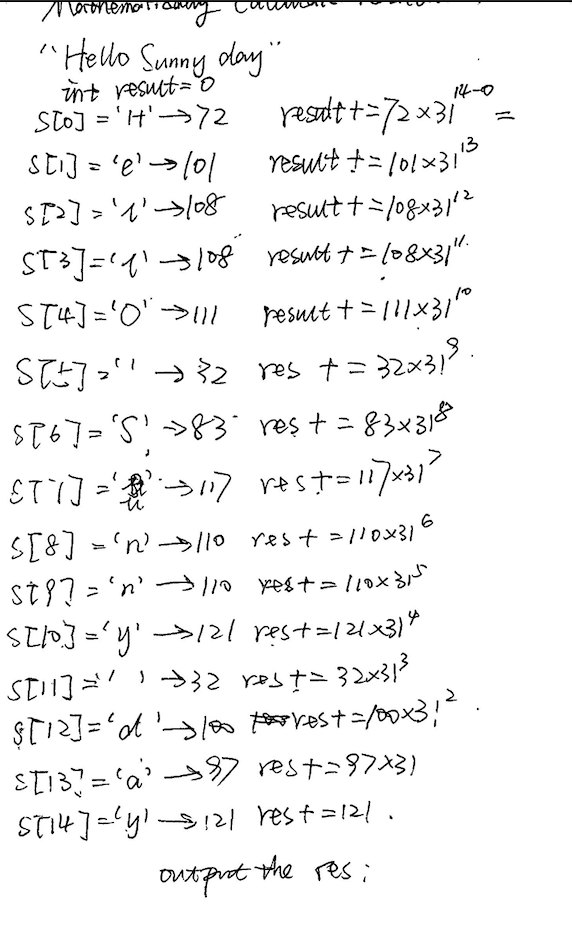 Mathematically Calculate
"Hello Sunny day"
int result = 0
S[0] = 'H' → 72 result += 72×31^14-0 =
S[1] = 'e' → 101 result += 101×31^13
S[2] = 'l' → 108 result += 108×31^12
S[3] = 'l' → 108 result += 108×31^11.
S[4] = 'O' → 111 result += 111×31^10
S[5] = ' ' → 32 res += 32×31^9.
S[6] = 'S' → 83 res += 83×31^8
S[7] = 'u' → 117 res += 117×31^7
S[8] = 'n' → 110 res += 110×31^6
S[9] = 'n' → 110 res += 110×31^5
S[10] = 'y' → 121 res += 121×31^4
S[11] = ' ' → 32 res += 32×31^3
S[12] = 'd' → 100 res += 100×31^2.
S[13] = 'a' → 97 res += 97×31
S[14] = 'y' → 121 res += 121.
output the res;